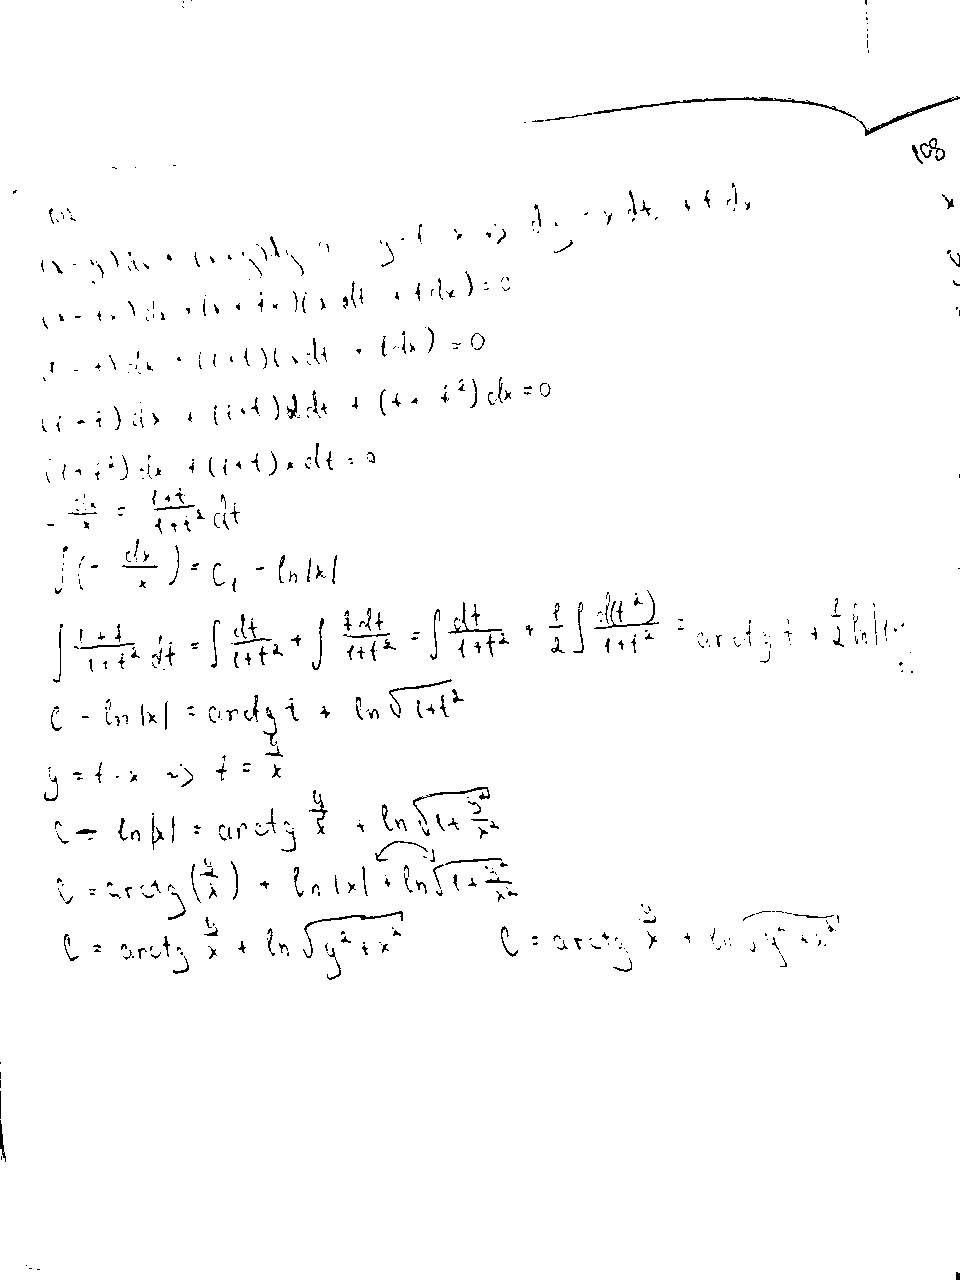 108
(x-y)dx + (x+y)dy = 0 y=t·x => dy = x dt + t dx
(x-tx)dx + (x+tx)(x dt + t dx) = 0
(1-t)dx + (1+t)(x dt + t dx) = 0
(1-t)dx + (1+t)x dt + (t+t²)dx = 0
(1+t²)dx + (1+t)x dt = 0
- dx/x = (1+t)/(1+t²) dt
∫(- dx/x) = C₁ - ln|x|
∫ (1+t)/(1+t²) dt = ∫ dt/(1+t²) + ∫ t dt/(1+t²) = ∫ dt/(1+t²) + 1/2 ∫ d(t²)/(1+t²) = arctg t + 1/2 ln|1+
C - ln|x| = arctg t + ln √(1+t²)
y = t·x => t = y/x
C - ln|x| = arctg y/x + ln √(1+y²/x²)
C = arctg(y/x) + ln|x| + ln √(1+y²/x²)
C = arctg y/x + ln √(y²+x²) C = arctg y/x + ln √(y²+x²)